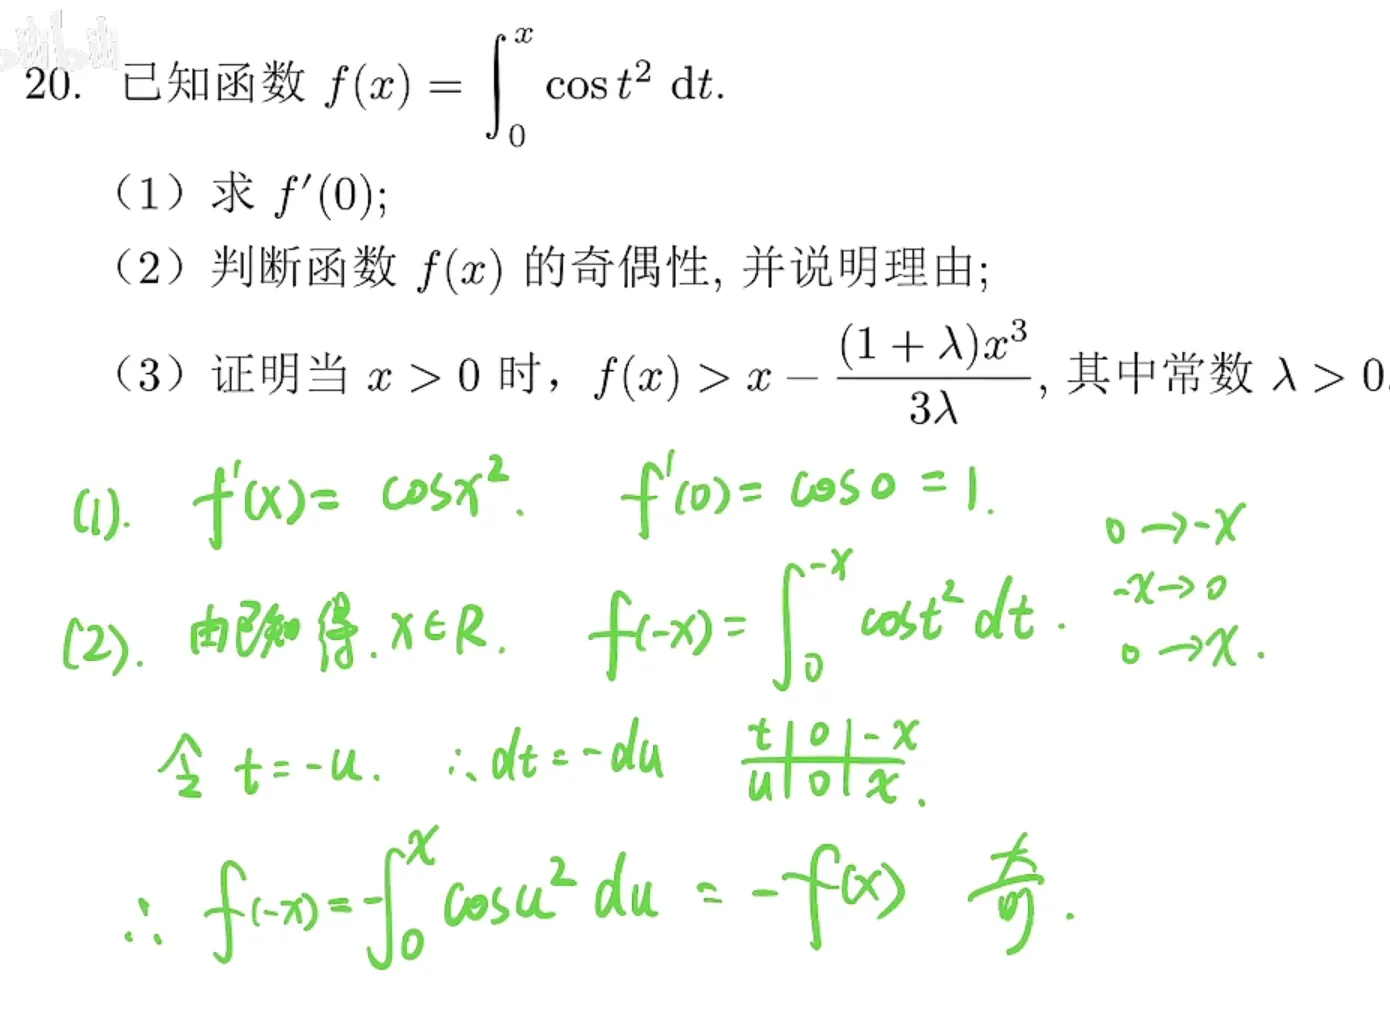 bilibili
20. 已知函数 f(x) = ∫₀ˣ cos t² dt.
(1) 求 f′(0);
(2) 判断函数 f(x) 的奇偶性, 并说明理由;
(3) 证明当 x > 0 时, f(x) > x − (1 + λ)x³/3λ, 其中常数 λ > 0.
(1). f′(x) = cosx². f′(0) = cos0 = 1.
0→-x
-x→0
0→x.
(2). 由已知得. x∈R. f(-x) = ∫₀⁻ˣ cost² dt.
令 t = -u. ∴ dt = -du
t | 0 | -x
u | 0 | x.
∴ f(-x) = -∫₀ˣ cosu² du = -f(x) 奇.